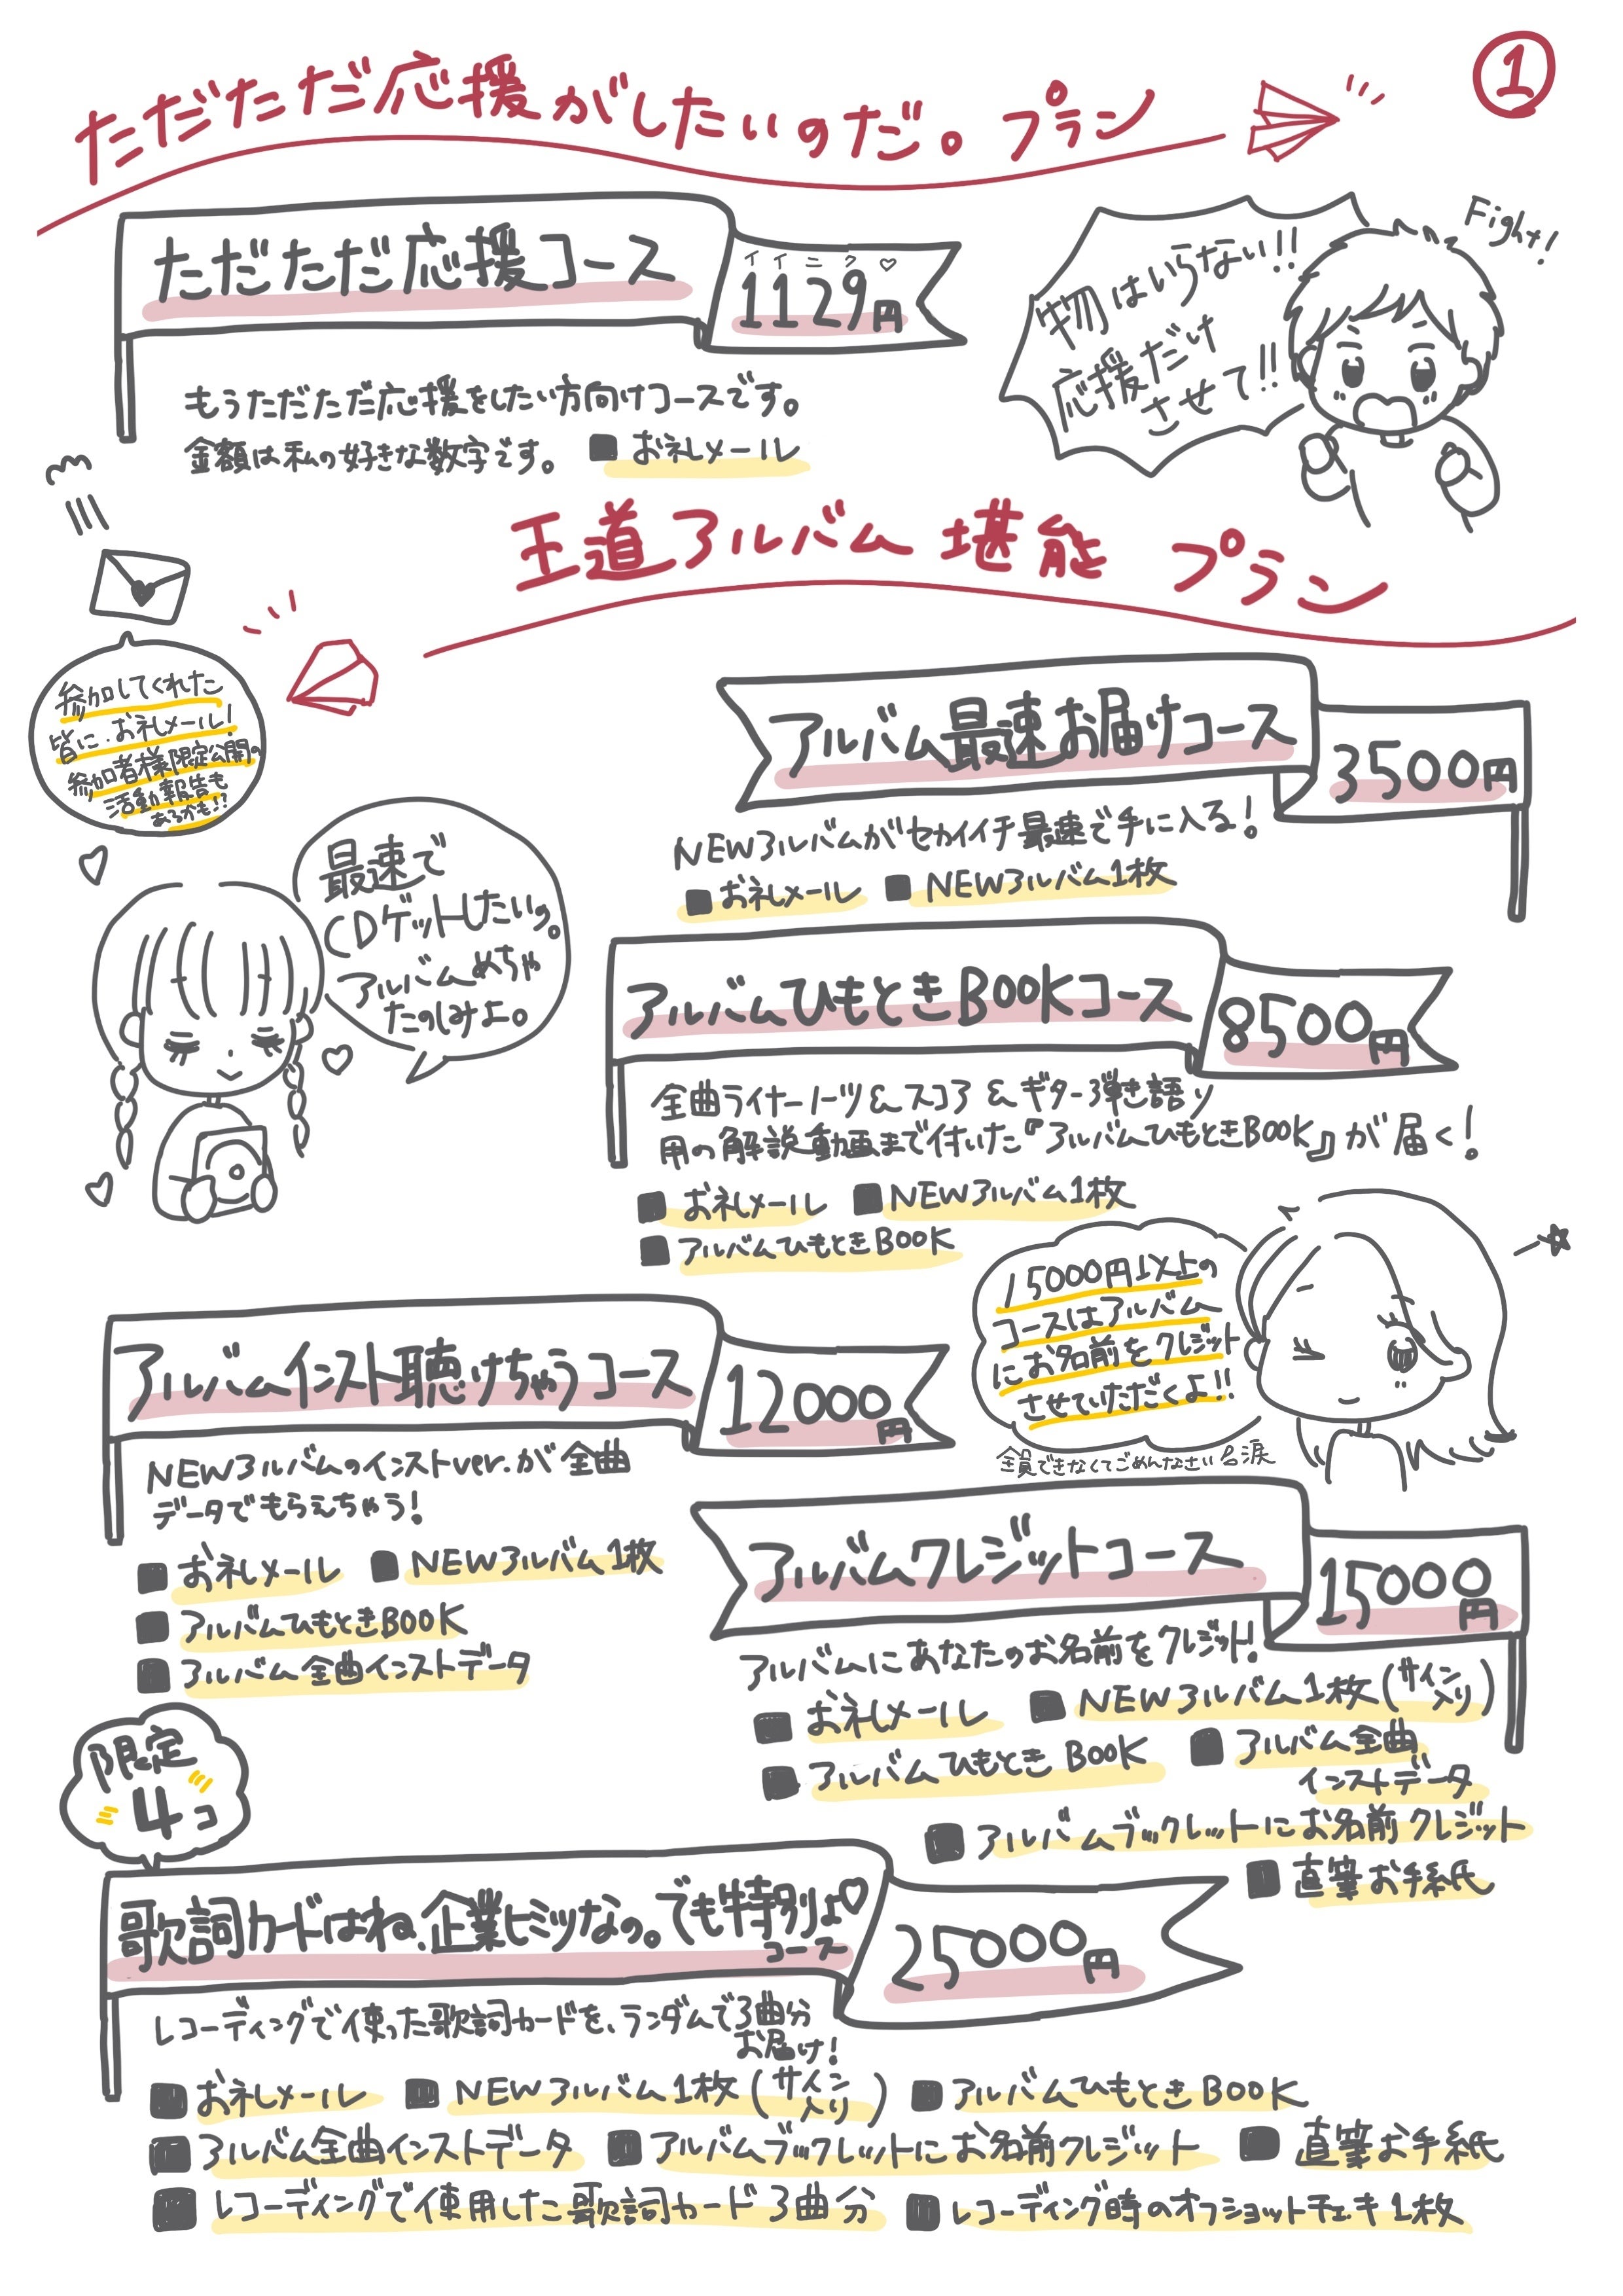 ①
ただただ応援がしたいのだ。プラン
ただただ応援コース
イイニク♡
1129円
もうただただ応援をしたい方向けコースです。
金額は私の好きな数字です。 ■お礼メール
物はいらない!!
応援だけ
させて!!
Fight!
王道アルバム堪能 プラン
参加してくれた
皆に、お礼メール!
参加者様限定公開の
活動報告も
あるかも!?
アルバム最速お届けコース
3500円
NEWアルバムがセカイイチ最速で手に入る!
■お礼メール ■NEWアルバム1枚
最速で
CDゲットしたいの。
アルバムめちゃ
たのしみよ。
アルバムひもときBOOKコース
8500円
全曲ライナーノーツ&スコア&ギター弾き語り
用の解説動画まで付いた『アルバムひもときBOOK』が届く!
■お礼メール ■NEWアルバム1枚
■アルバムひもときBOOK
15000円以上の
コースはアルバム
にお名前をクレジット
させていただくよ!!
できなくてごめんなさい
涙
アルバムインスト聴けちゃうコース
12000円
NEWアルバムのインストver.が全曲
データでもらえちゃう!
■お礼メール ■NEWアルバム1枚
■アルバムひもときBOOK
■アルバム全曲インストデータ
アルバムクレジットコース
15000円
アルバムにあなたのお名前をクレジット!
■お礼メール ■NEWアルバム1枚(サイン入り)
■アルバムひもときBOOK ■アルバム全曲
インストデータ
■アルバムブックレットにお名前クレジット
■直筆お手紙
限定
4コ
歌詞カードはね、企業ヒミツなの。でも特別よ♡
コース
25000円
レコーディングで使った歌詞カードを、ランダムで3曲分
お届け!
■お礼メール ■NEWアルバム1枚(サイン入り) ■アルバムひもときBOOK
■アルバム全曲インストデータ ■アルバムブックレットにお名前クレジット ■直筆お手紙
■レコーディングで使用した歌詞カード3曲分 ■レコーディング時のオフショットチェキ1枚